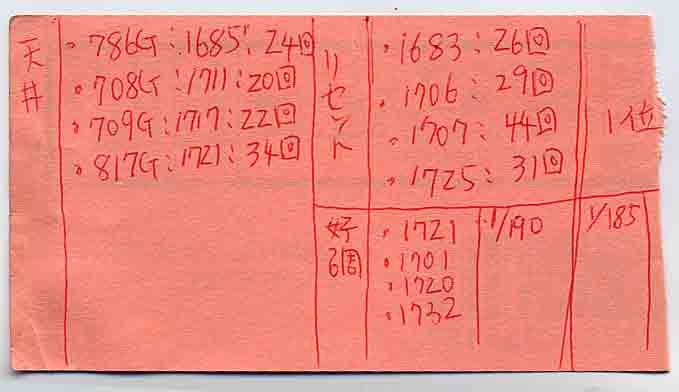 天井
・786G:1685:24回
・708G:1711:20回
・709G:1717:22回
・817G:1721:34回
リセット
・1683:26回
・1706:29回
・1707:44回
・1725:31回
1位
好調
・1721
・1701
・1720
・1732
1/190
1/185